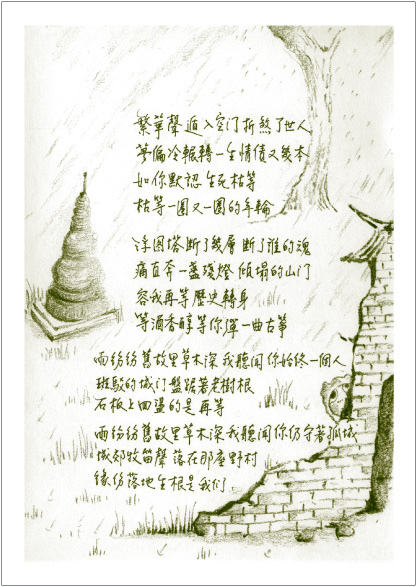 繁華聲 遁入空门 折煞了世人
夢偏冷 輾轉一生 情債又幾本
如你默認 生死枯等
枯等一圈又一圈的年輪
浮图塔 断了幾層 断了誰的魂
痛直奔 一盏殘燈 傾塌的山门
容我再等 歷史轉身
等酒香醇 等你彈一曲古筝
雨纷纷 舊故里草木深 我聽聞 你始终一個人
班駁的城门 盤踞著老樹根
石板上回盪的是再等
雨纷纷 舊故里草木深 我聽聞 你仍守著孤城
城郊牧笛聲 落在那座野村
缘份落地生根是我们